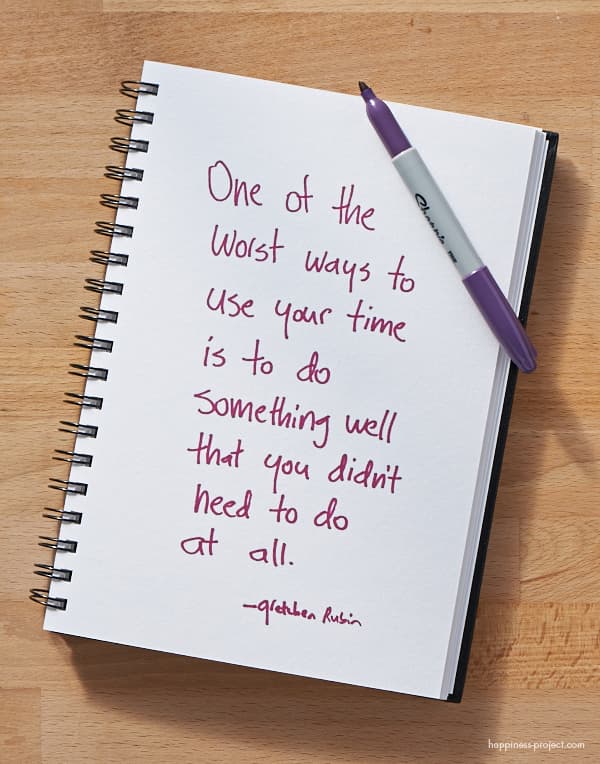 One of the
Worst ways to
use your time
is to do
something well
that you didn't
need to do
at all.
-gretchen Rubin
Sharpie
happiness-project.com